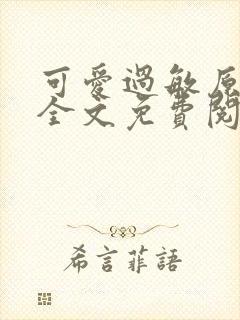 可愛過敏原
全文免費閱
希言菲語